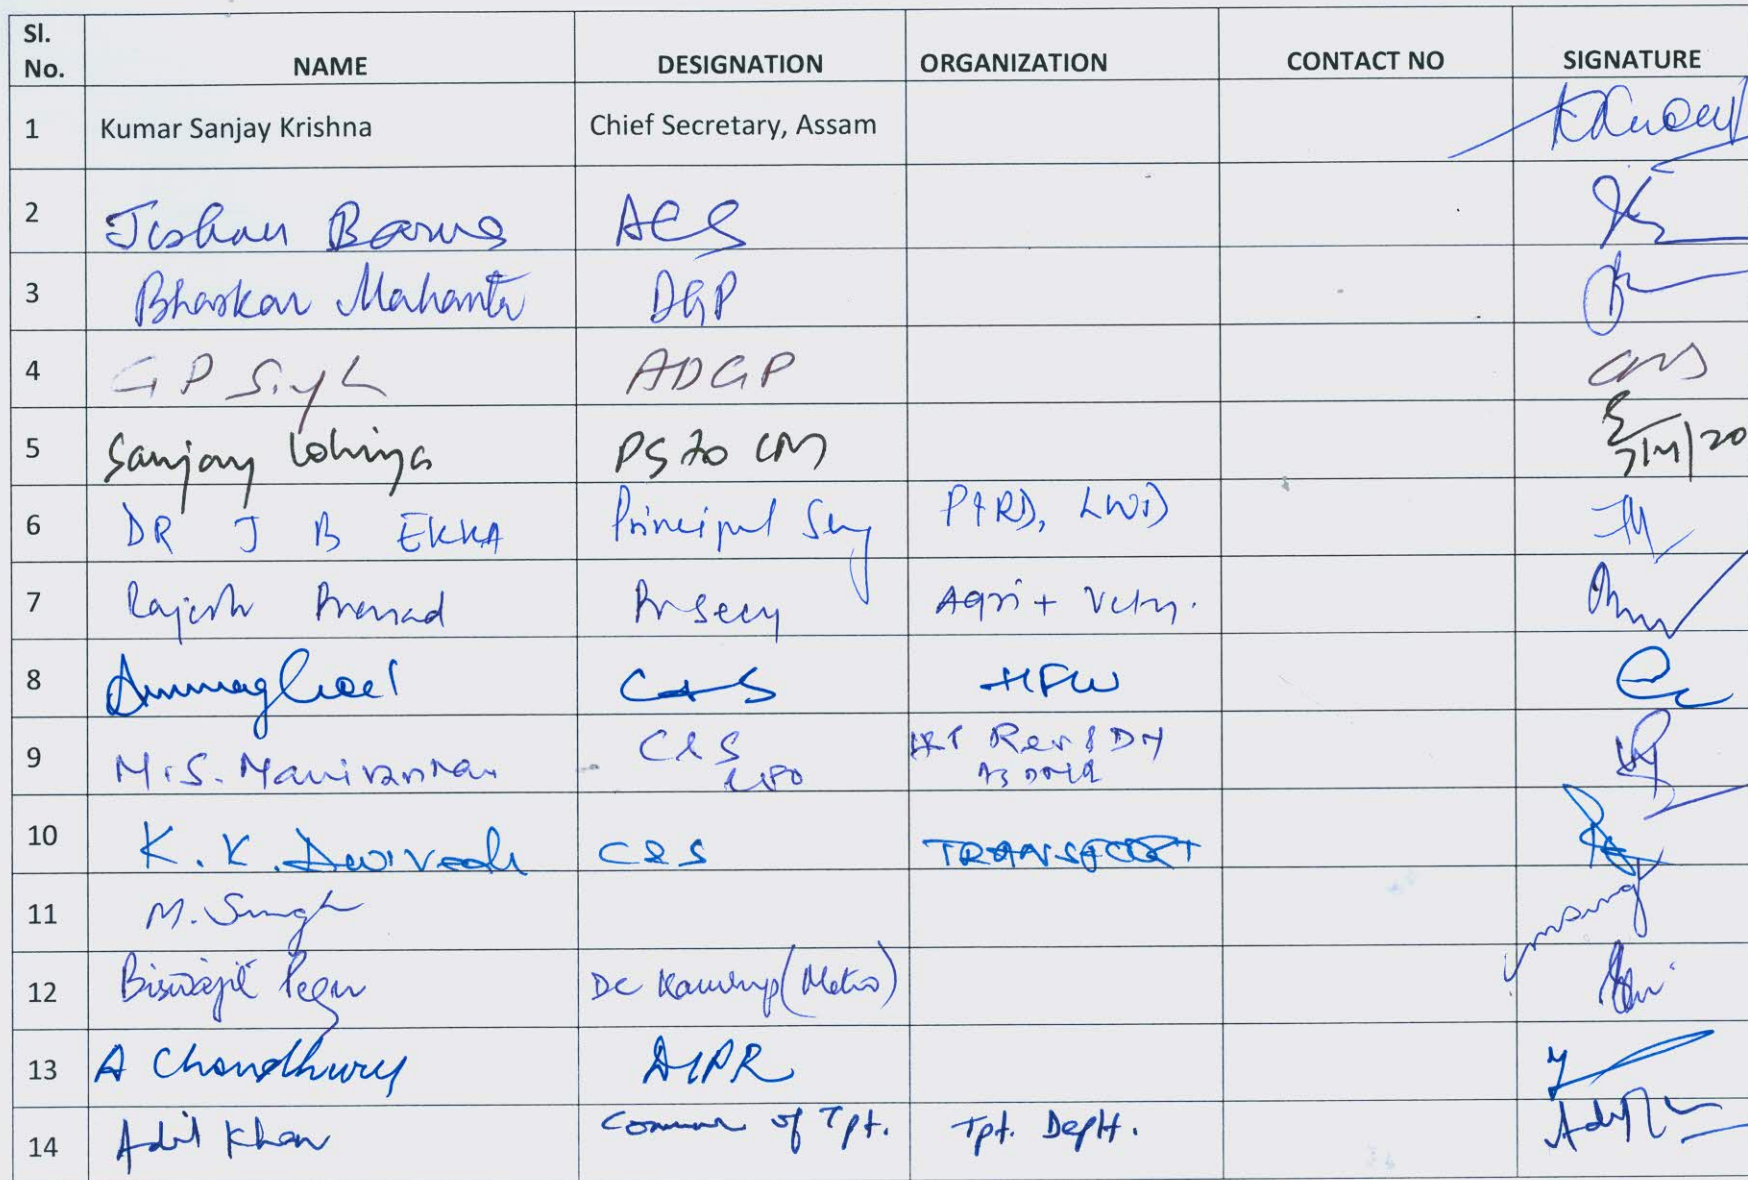 Sl. No. NAME DESIGNATION ORGANIZATION CONTACT NO SIGNATURE
1 Kumar Sanjay Krishna Chief Secretary, Assam
2 Jishnu Barua ACS
3 Bhaskar Mahanta DGP
4 G P Singh ADGP
5 Sanjay Lohiya PS to CM
6 DR J B EKKA Principal Secy P&RD,
7 Rajesh Prasad Pr Secy Agri + Vety.
8 Anurag Goel C&S HFW
9 M.S. Manivannan C&S Rev & DM
10 K. K. Dwivedi C&S TRANSPORT
11 M. Singh
12 Biswajit Pegu DC Kamrup (Metro)
13 A Choudhury DIPR
14 Adil Khan Commr of Tpt. Tpt. Deptt.